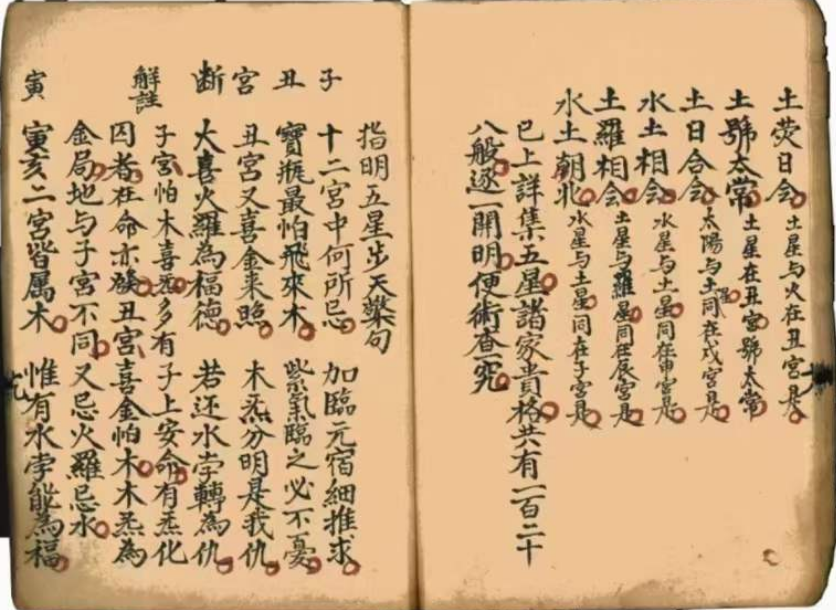 土熒日会 土星与火在丑宮是
土號太常 土星在丑宮號太常
土日合会 太陽与土星同在戌宮是
水土相会 水星与土星同在申宮是
土羅相会 土星与羅星同在辰宮是
水土朝北 水星与土星同在子宮是
已上詳集五星諸家貴格共有一百二十
八般逐一開明便術查究
指明五星步天槩句
子 十二宮中何所忌 加臨元宿細推求
丑 寶瓶最怕飛來木 紫氣臨之必不憂
宮 丑宮又喜金来照 木炁分明是我仇
断 大喜火羅為福德 若还水孛轉為仇
子宮怕木喜炁多有子上安命有炁化
解註 囚者在命亦發丑宮喜金怕木木炁為
金局地与子宮不同又忌火羅忌水
寅 寅亥二宮皆属木 惟有水孛能為福